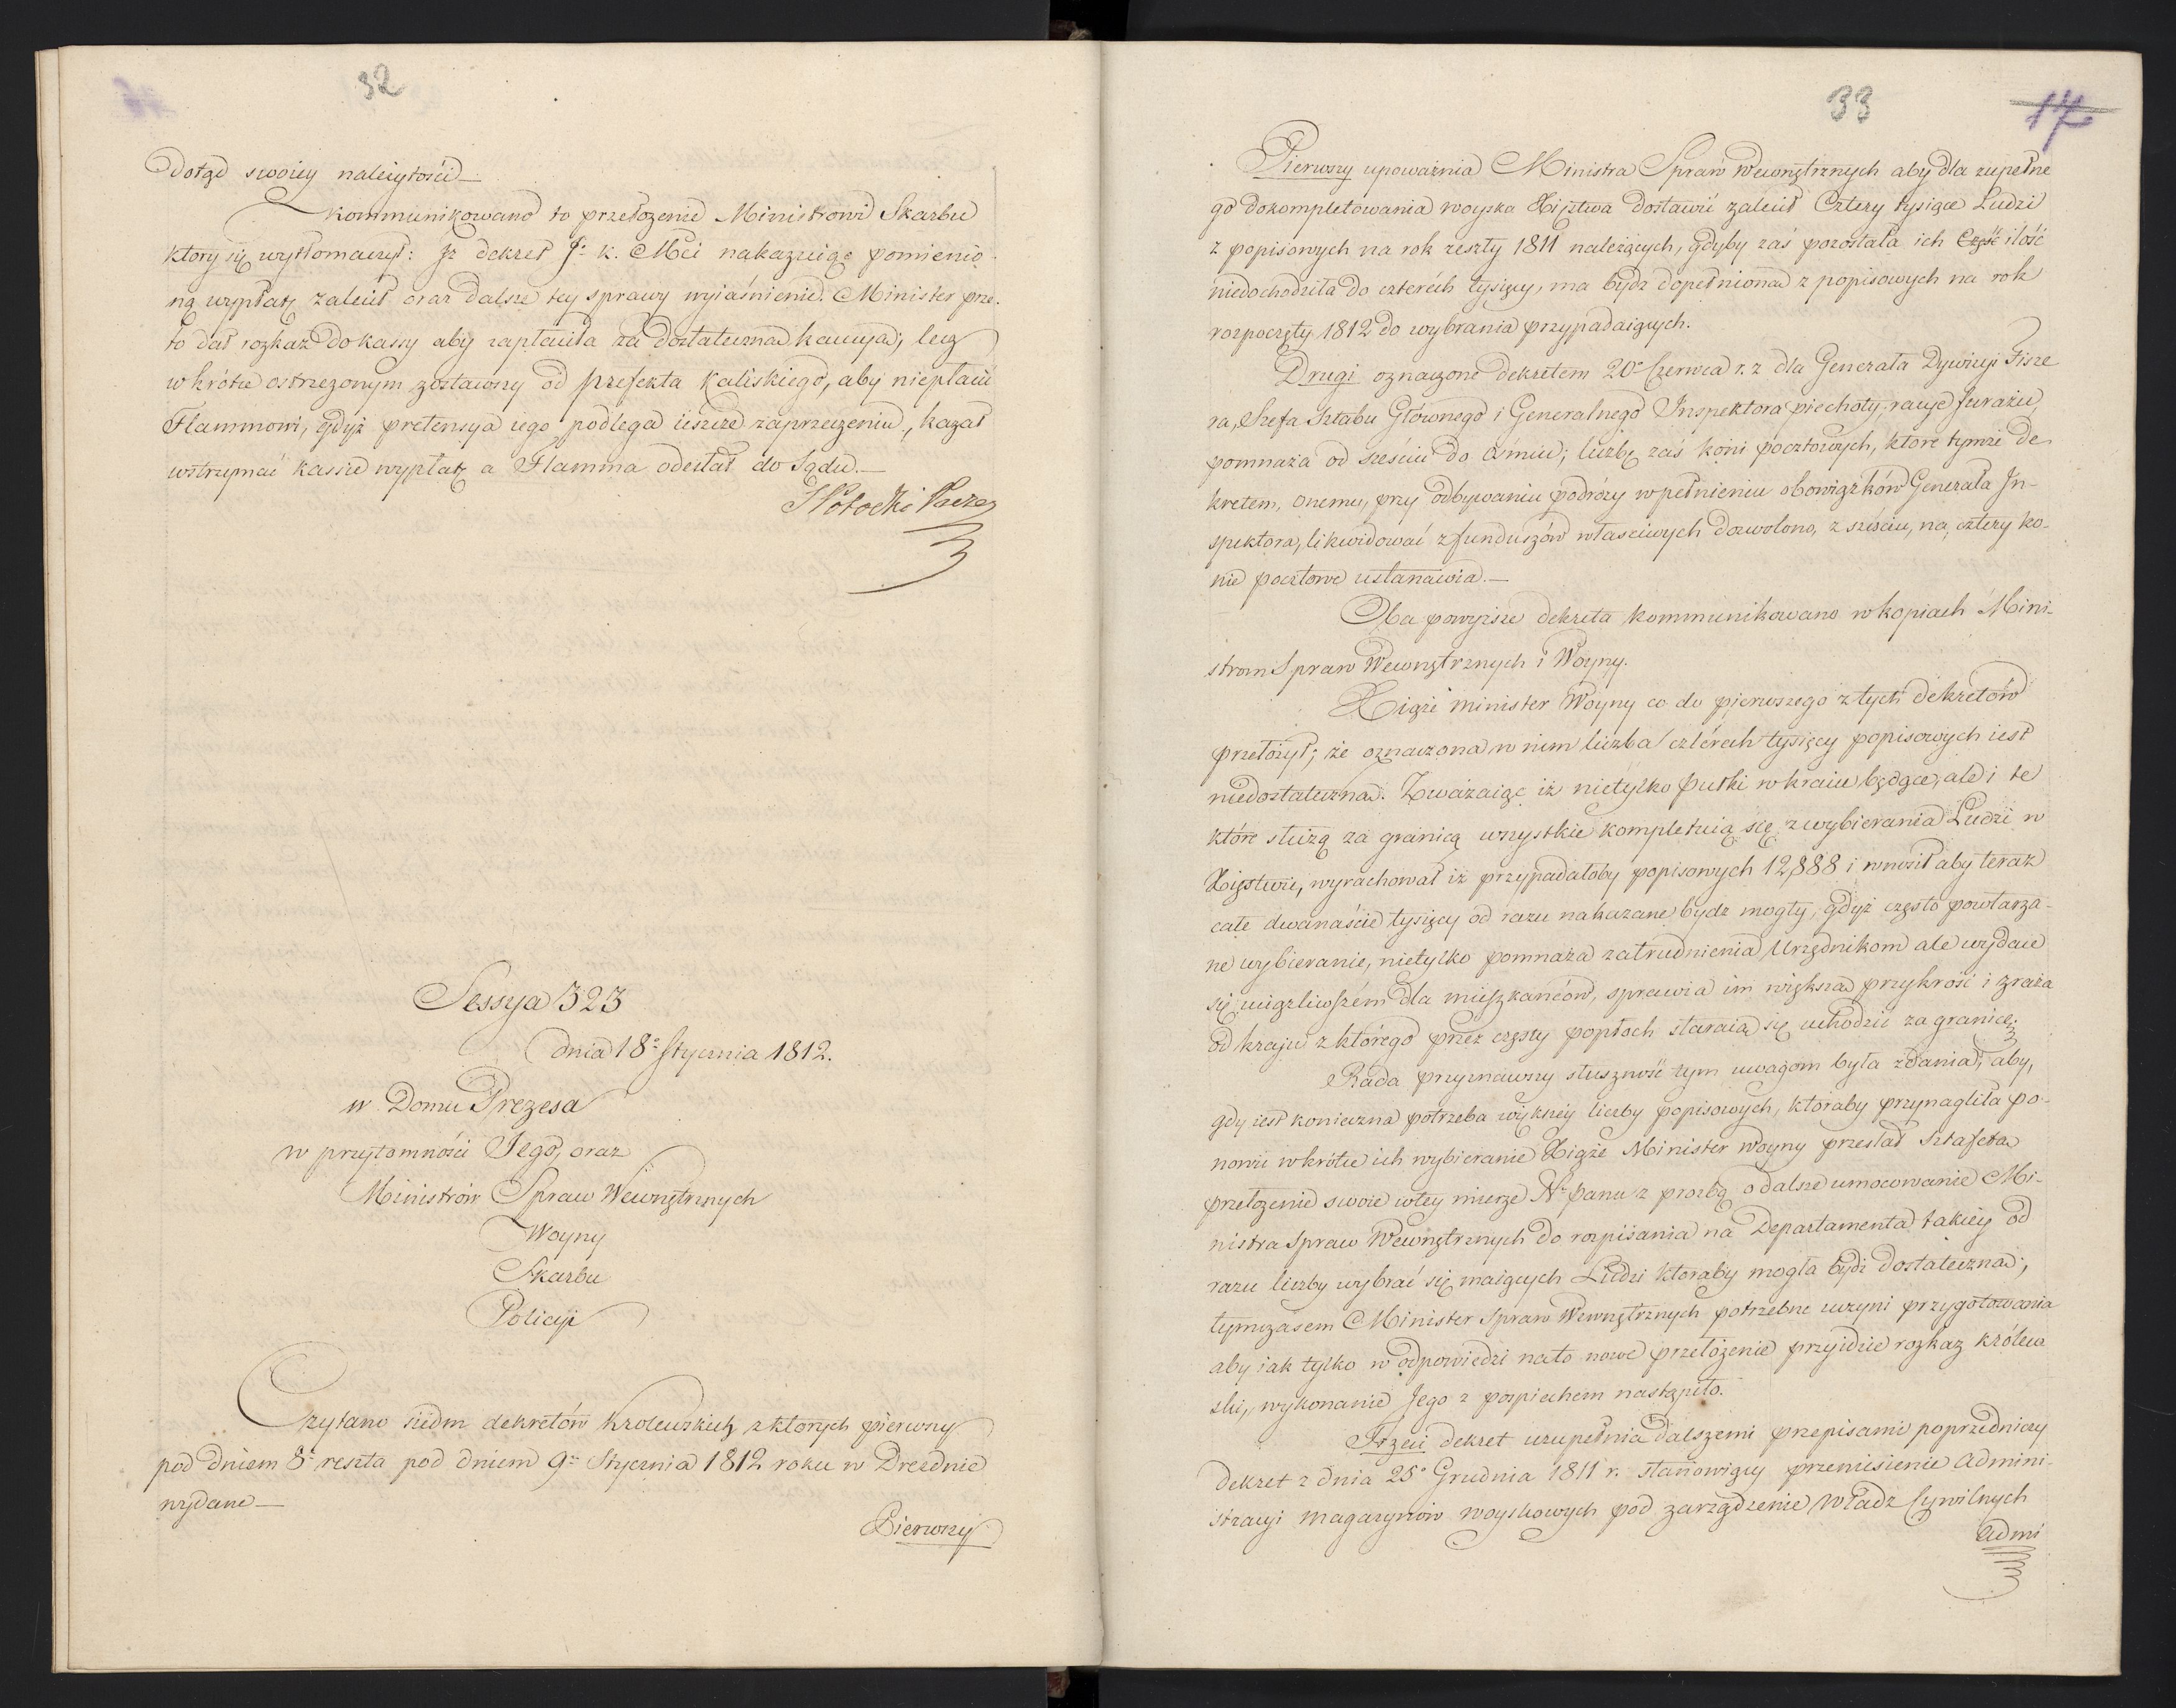 32
dotąd swoiey należytości —
Kommunikowano to przełożenie Ministrowi Skarbu
który się wytłomaczył: Iż dekret J. K. Mci nakazuiąc pomienio-
ną wypłatę zalecił oraz dalsze tey sprawy wyiaśnienie. Minister prze-
to dał rozkaz do kassy aby zapłaciła za dostateczną kaucyą; lecz
wkrótce ostrzeżonym zostawszy od prefekta Kaliskiego, aby niepłacić
Flammowi, gdyż pretensya iego podlega ieszcze zaprzeczeniu, kazał
wstrzymać kassie wypłatę a Flamma odesłał do Sądu. —
S Potocki Prezes
Sessya 323
dnia 18° Stycznia 1812.
w Domu Prezesa
w przytomności Jego, oraz
Ministrów Spraw Wewnętrznych
Woyny
Skarbu
Policyi
Czytano siedm dekretów Królewskich z których pierwszy
pod dniem 8° reszta pod dniem 9° Stycznia 1812 roku w Dreznie
wydane —
Pierwszy
33
17
Pierwszy upoważnia Ministra Spraw Wewnętrznych aby dla zupełne
go dokompletowania woyska Xięztwa dostawić zalecił Cztery tysiące Ludzi
z popisowych na rok zeszły 1811 należących, gdyby zaś pozostała ich Część ilość
niedochodziła do czterech tysięcy, ma bydź dopełniona z popisowych na rok
rozpoczęty 1812 do wybrania przypadaiących.
Drugi oznaczone dekretem 20° Czerwca r. z. dla Generała Dywizyi Fisze
ra, Szefa Sztabu Głównego i Generalnego Inspektora piechoty, racye furażu
pomnaża od sześciu do ośmiu; liczbę zaś koni pocztowych, które tymże de
kretem, onemu, przy odbywaniu podróży w pełnieniu obowiązków Generała In-
spektora, likwidować z funduszów właściwych dozwolono, z sześciu, na cztery ko-
nie pocztowe ustanawia. —
Oba powyższe dekreta kommunikowano w kopiach Mini-
strom Spraw Wewnętrznych i Woyny.
Xiąże Minister Woyny co do pierwszego z tych dekretów
przełożył; że oznaczona w nim liczba czterech tysięcy popisowych iest
niedostateczna. Zważaiąc iż nietylko pułki w kraiu będące, ale i te
które służą za granicą wszystkie kompletuią się z wybierania Ludzi w
Xięstwie, wyrachował iż przypadałoby popisowych 12,888 i wnosił aby teraz
całe dwanaście tysięcy od razu nakazane bydź mogły, gdyż często powtarza-
ne wybieranie, nietylko pomnaża zatrudnienia Urzędnikom ale wydaie
się uciążliwszém dla mieszkańców, sprawia im większą przykrość i zraża
od kraju z którego przez częsty popłoch staraią się uchodzić za granicę.
Rada przyznawszy słuszność tym uwagom była zdania, aby,
gdy iest konieczna potrzeba większey liczby popisowych, któraby przynagliła po-
nowić wkrótce ich wybieranie Xiąże Minister woyny przesłał Sztafetą
przełożenie swoie w tey mierze N. Panu z prośbą o dalsze umocowanie Mi-
nistra Spraw Wewnętrznych do rozpisania na Departamenta takiey od
razu liczby wybrać się maiących Ludzi któraby mogła bydź dostateczną,
tymczasem Minister Spraw Wewnętrznych potrzebne uczyni przygotowania
aby iak tylko w odpowiedzi na to nowe przełożenie przyidzie rozkaz królew
ski, wykonanie Jego z pospiechem nastąpiło.
Trzeci dekret uzupełnia dalszemi przepisami poprzedniczy
dekret z dnia 25° Grudnia 1811 r. stanowiący przeniesienie Admini-
stracyi magazynów woyskowych pod zarządzenie Władz Cywilnych
Admi